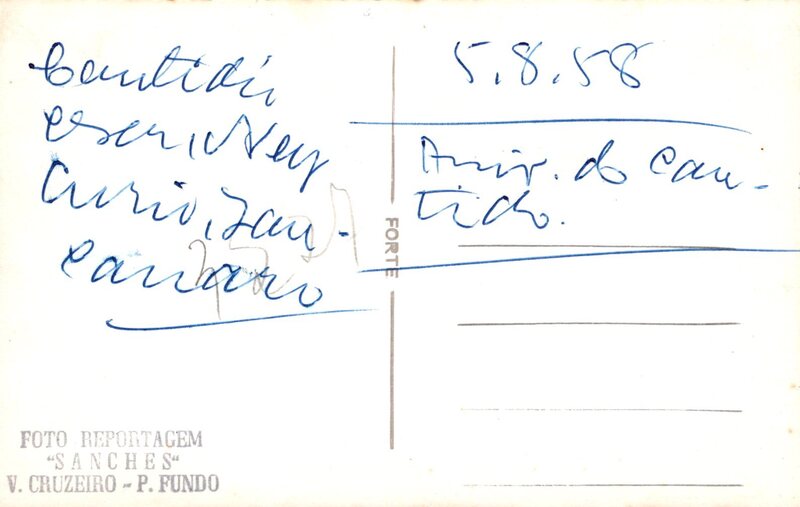 Cantidio,
eser, Ney
Curio, Zan-
Canaro
5.8.58
Aniv. do Can-
tido.
FORTE
FOTO REPORTAGEM
"SANCHES"
V. CRUZEIRO - P. FUNDO